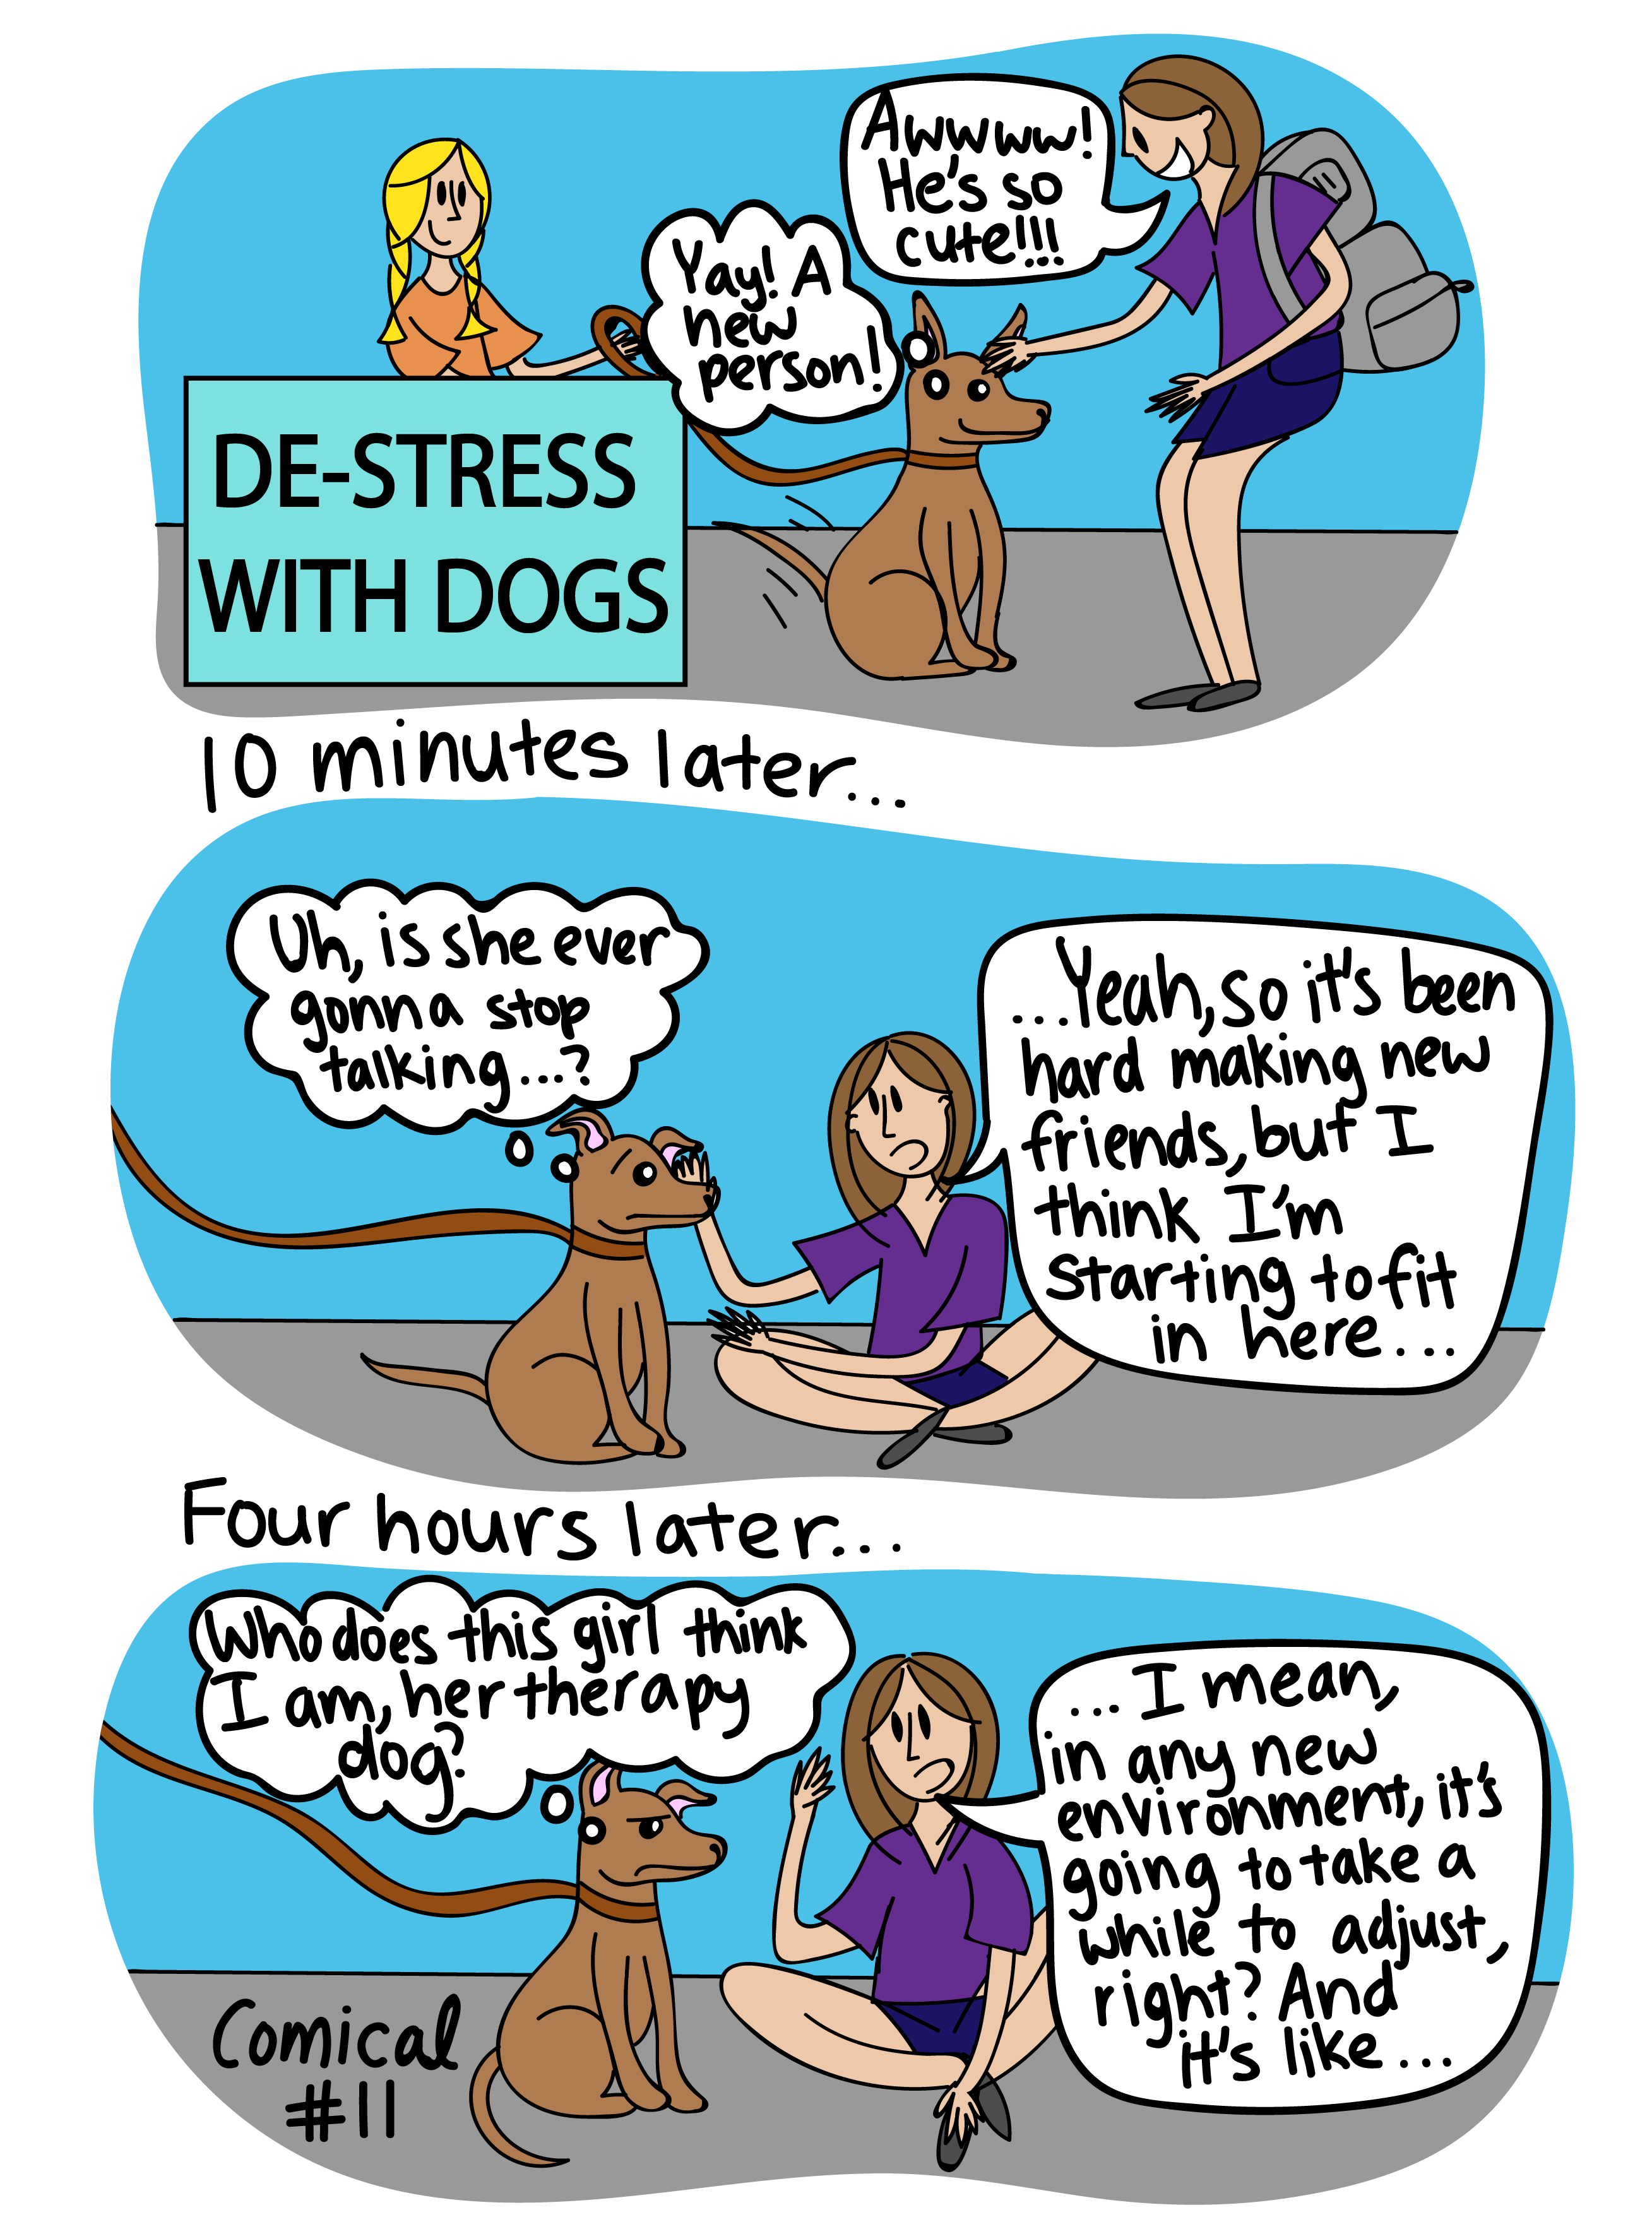 Awwww!
He's so
cute!!!
Yay! A
new
person!
DE-STRESS
WITH DOGS
10 minutes later...
Uh, is she ever
gonna stop
talking...?
...Yeah, so it's been
hard making new
friends, but I
think I'm
starting to fit
in here...
Four hours later...
Who does this girl think
I am, her therapy
dog?
...I mean,
in any new
environment, it's
going to take a
while to adjust,
right? And
it's like...
Comical
#11